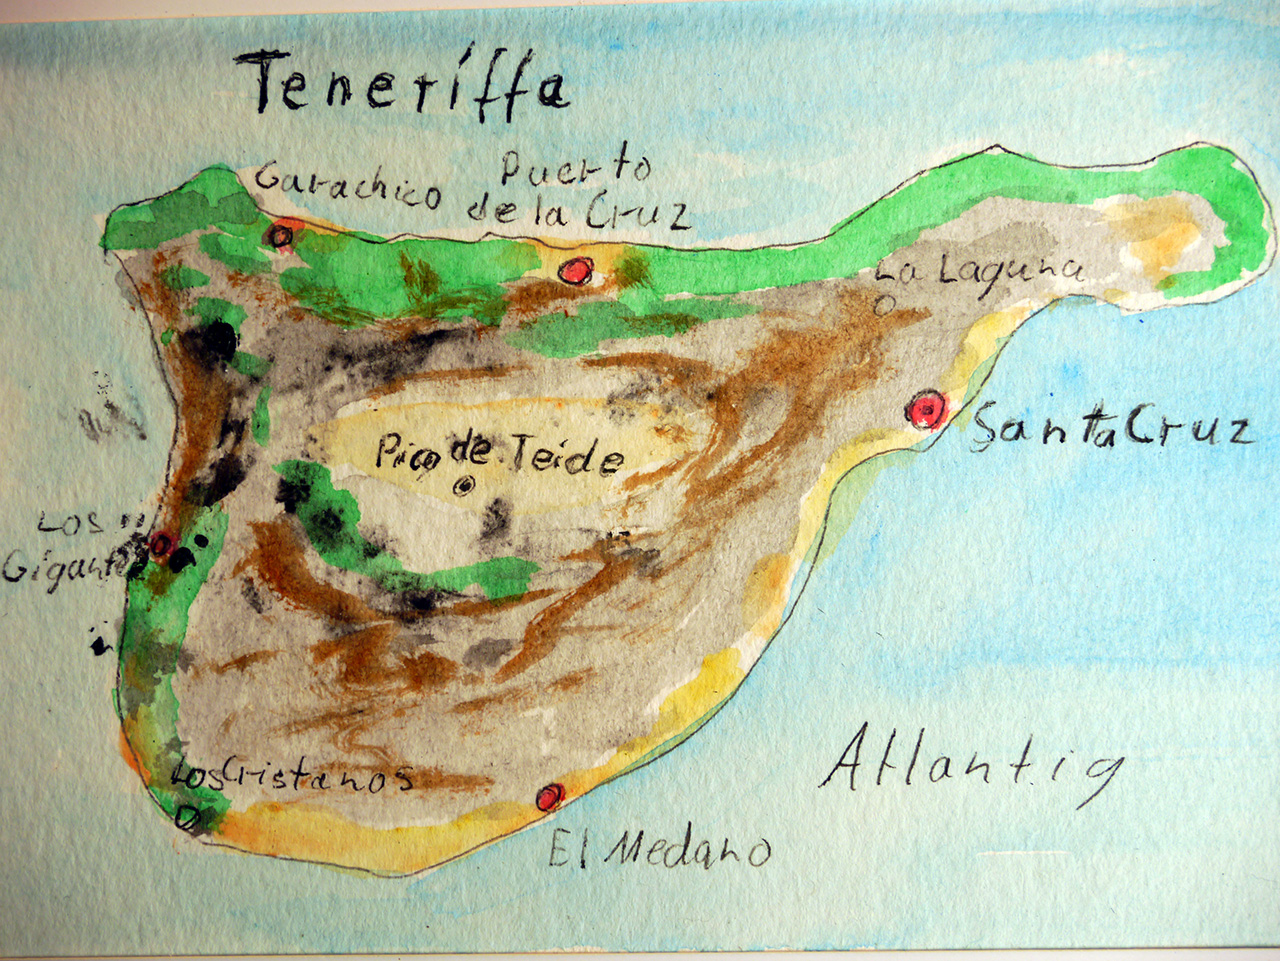 Teneriffa
Garachico
Puerto
de la Cruz
La Laguna
Santa Cruz
Pico de Teide
Los
Gigante
Atlantig
Los Cristanos
El Medano